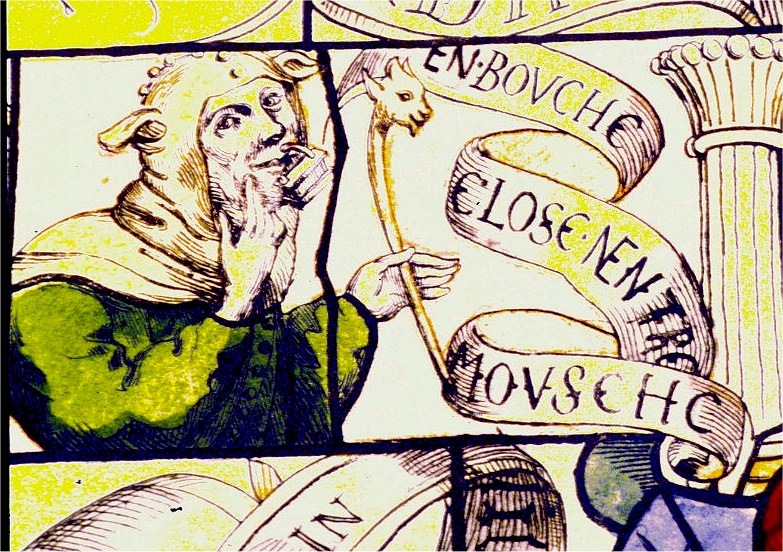 EN·BOVCHE
CLOSE·NENTRE
MOVSEHE
IN